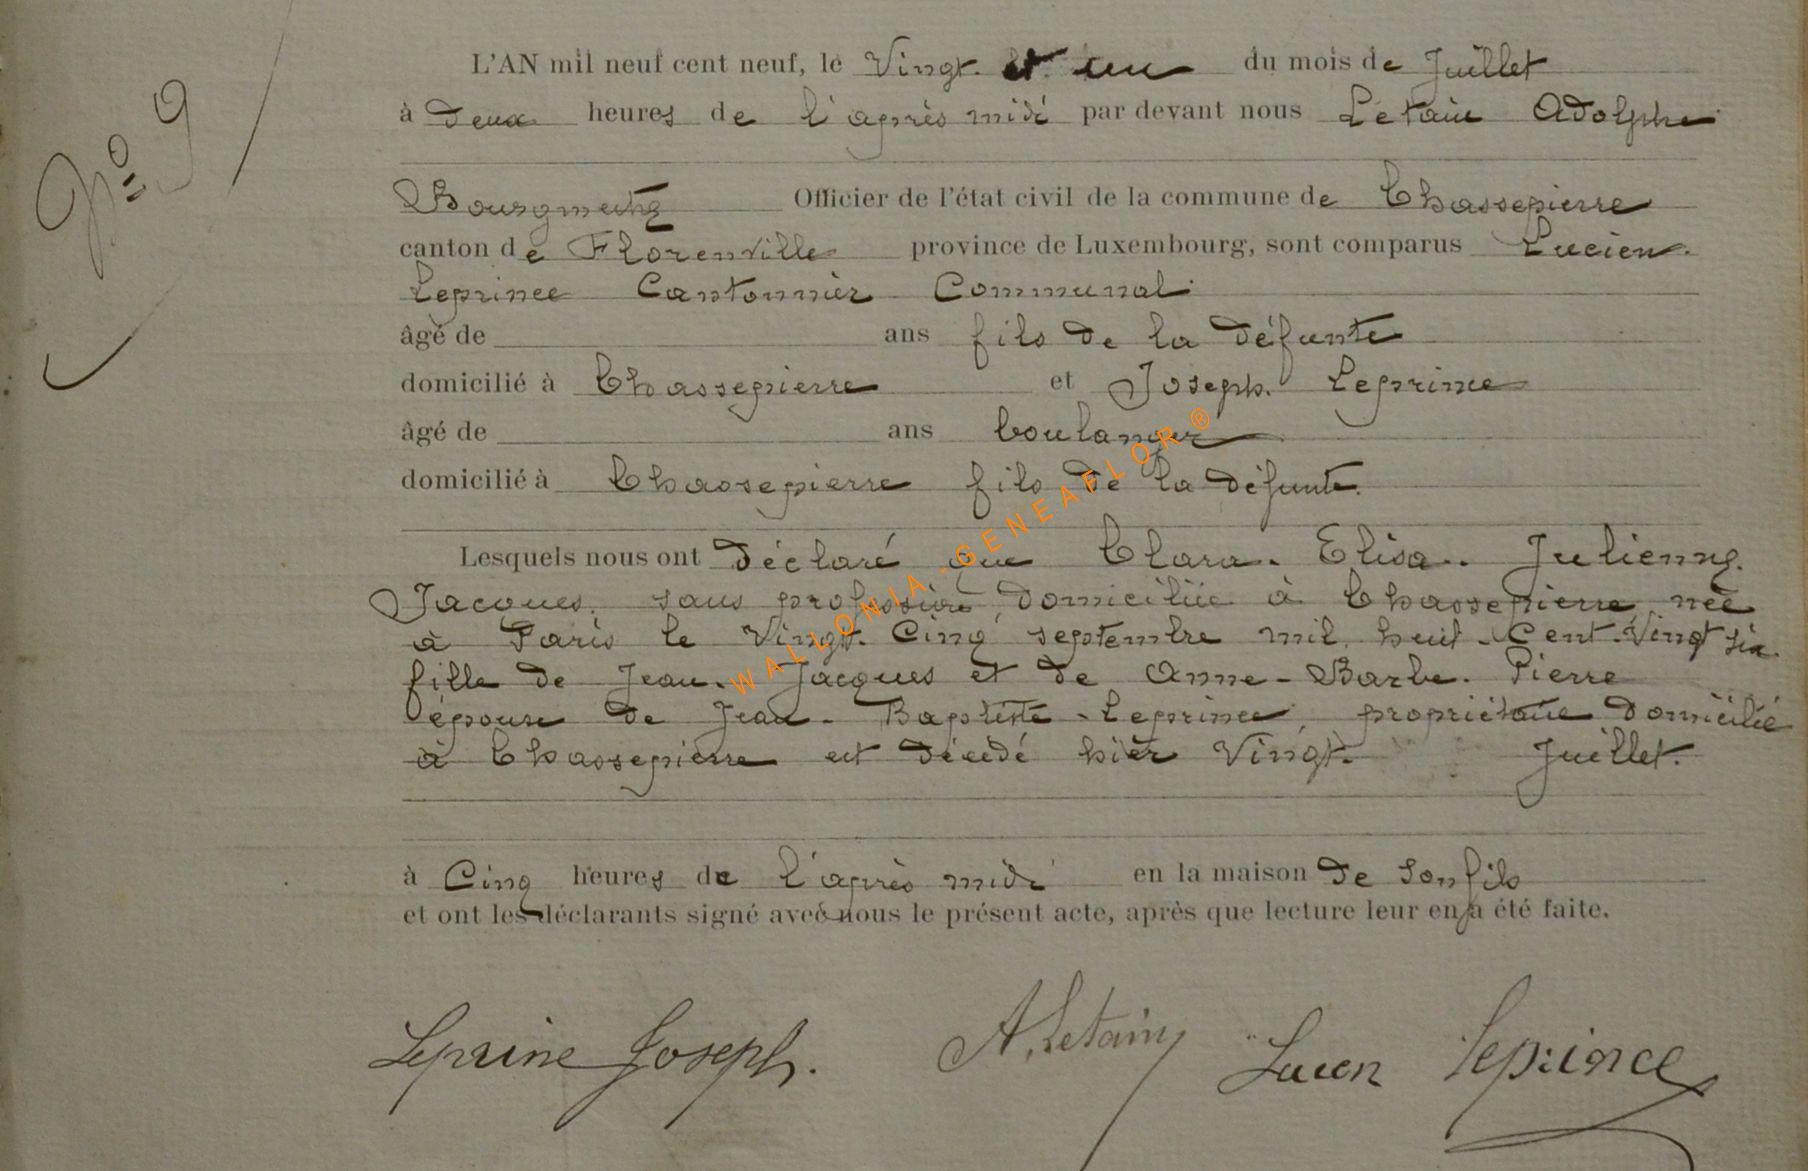 N° 9
L'AN mil neuf cent neuf, le Vingt et un du mois de Juillet
à deux heures de l'après midi par devant nous Létain Adolphe
Bourgmestre Officier de l'état civil de la commune de Chassepierre
canton de Florenville province de Luxembourg, sont comparus Lucien
Leprince Cantonnier Communal
âgé de ans fils de la défunte
domicilié à Chassepierre et Joseph Leprince
âgé de ans boulanger
domicilié à Chassepierre fils de la défunte.
Lesquels nous ont déclaré que Clara. Elisa. Julienne.
Jacques, sans profession domiciliée à Chassepierre née
à Paris le Vingt. Cinq septembre mil huit Cent Vingt six.
fille de Jean. Jacques et de Anne-Barbe. Pierre
épouse de Jean-Baptiste Leprince, propriétaire domicilié
à Chassepierre est décédé hier Vingt. Juillet.
à Cinq heures de l'après midi en la maison de son fils
et ont les déclarants signé avec nous le présent acte, après que lecture leur en a été faite.
Leprine Joseph. A. Letain Lucien Leprince
WALLONIA-GENEAFLOR®